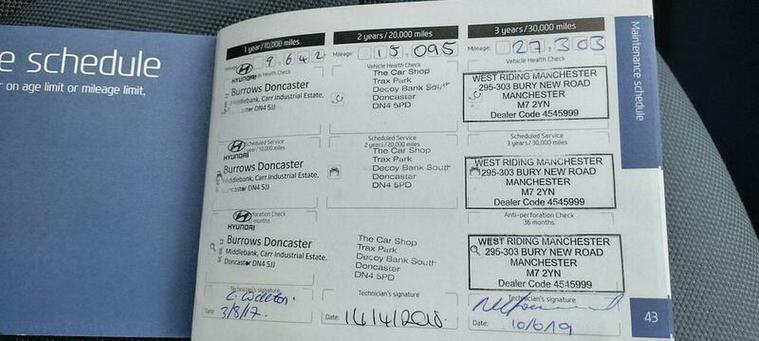 e schedule
r on age limit or mileage limit.
1 year/10,000 miles
9.642
HYUNDAI
Health Check
Burrows Doncaster
Middlebank, Carr Industrial Estate,
DN4 5JJ
Scheduled Service
1 year/10,000 miles
HYUNDAI
Burrows Doncaster
Middlebank, Carr Industrial Estate,
Doncaster DN4 5JJ
HYUNDAI
Burrows Doncaster
Middlebank, Carr Industrial Estate,
Doncaster DN4 5JJ
Technician's signature
Date:
3/8/17.
2 years/20,000 miles
Mileage: 15.095
Vehicle Health Check
The Car Shop
Trax Park
Decoy Bank South
Doncaster
DN4 5PD
Scheduled Service
2 years/20,000 miles
The Car Shop
Trax Park
Decoy Bank South
Doncaster
DN4 5PD
The Car Shop
Trax Park
Decoy Bank South
Doncaster
DN4 5PD
Technician's signature
Date: 14/4/2018
3 years/30,000 miles
Mileage: 27.303
Vehicle Health Check
WEST RIDING MANCHESTER
295-303 BURY NEW ROAD
MANCHESTER
M7 2YN
Dealer Code 4545999
Scheduled Service
3 years/30,000 miles
WEST RIDING MANCHESTER
295-303 BURY NEW ROAD
MANCHESTER
M7 2YN
Dealer Code 4545999
Anti-perforation Check
36 months
WEST RIDING MANCHESTER
295-303 BURY NEW ROAD
MANCHESTER
M7 2YN
Dealer Code 4545999
Technician's signature
Date: 10/6/19
Maintenance schedule
43